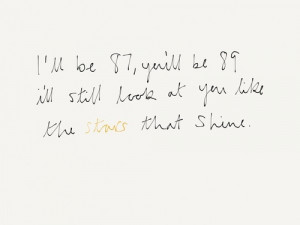 I'll be 87, you'll be 89
i'll still look at you like
the stars that shine.